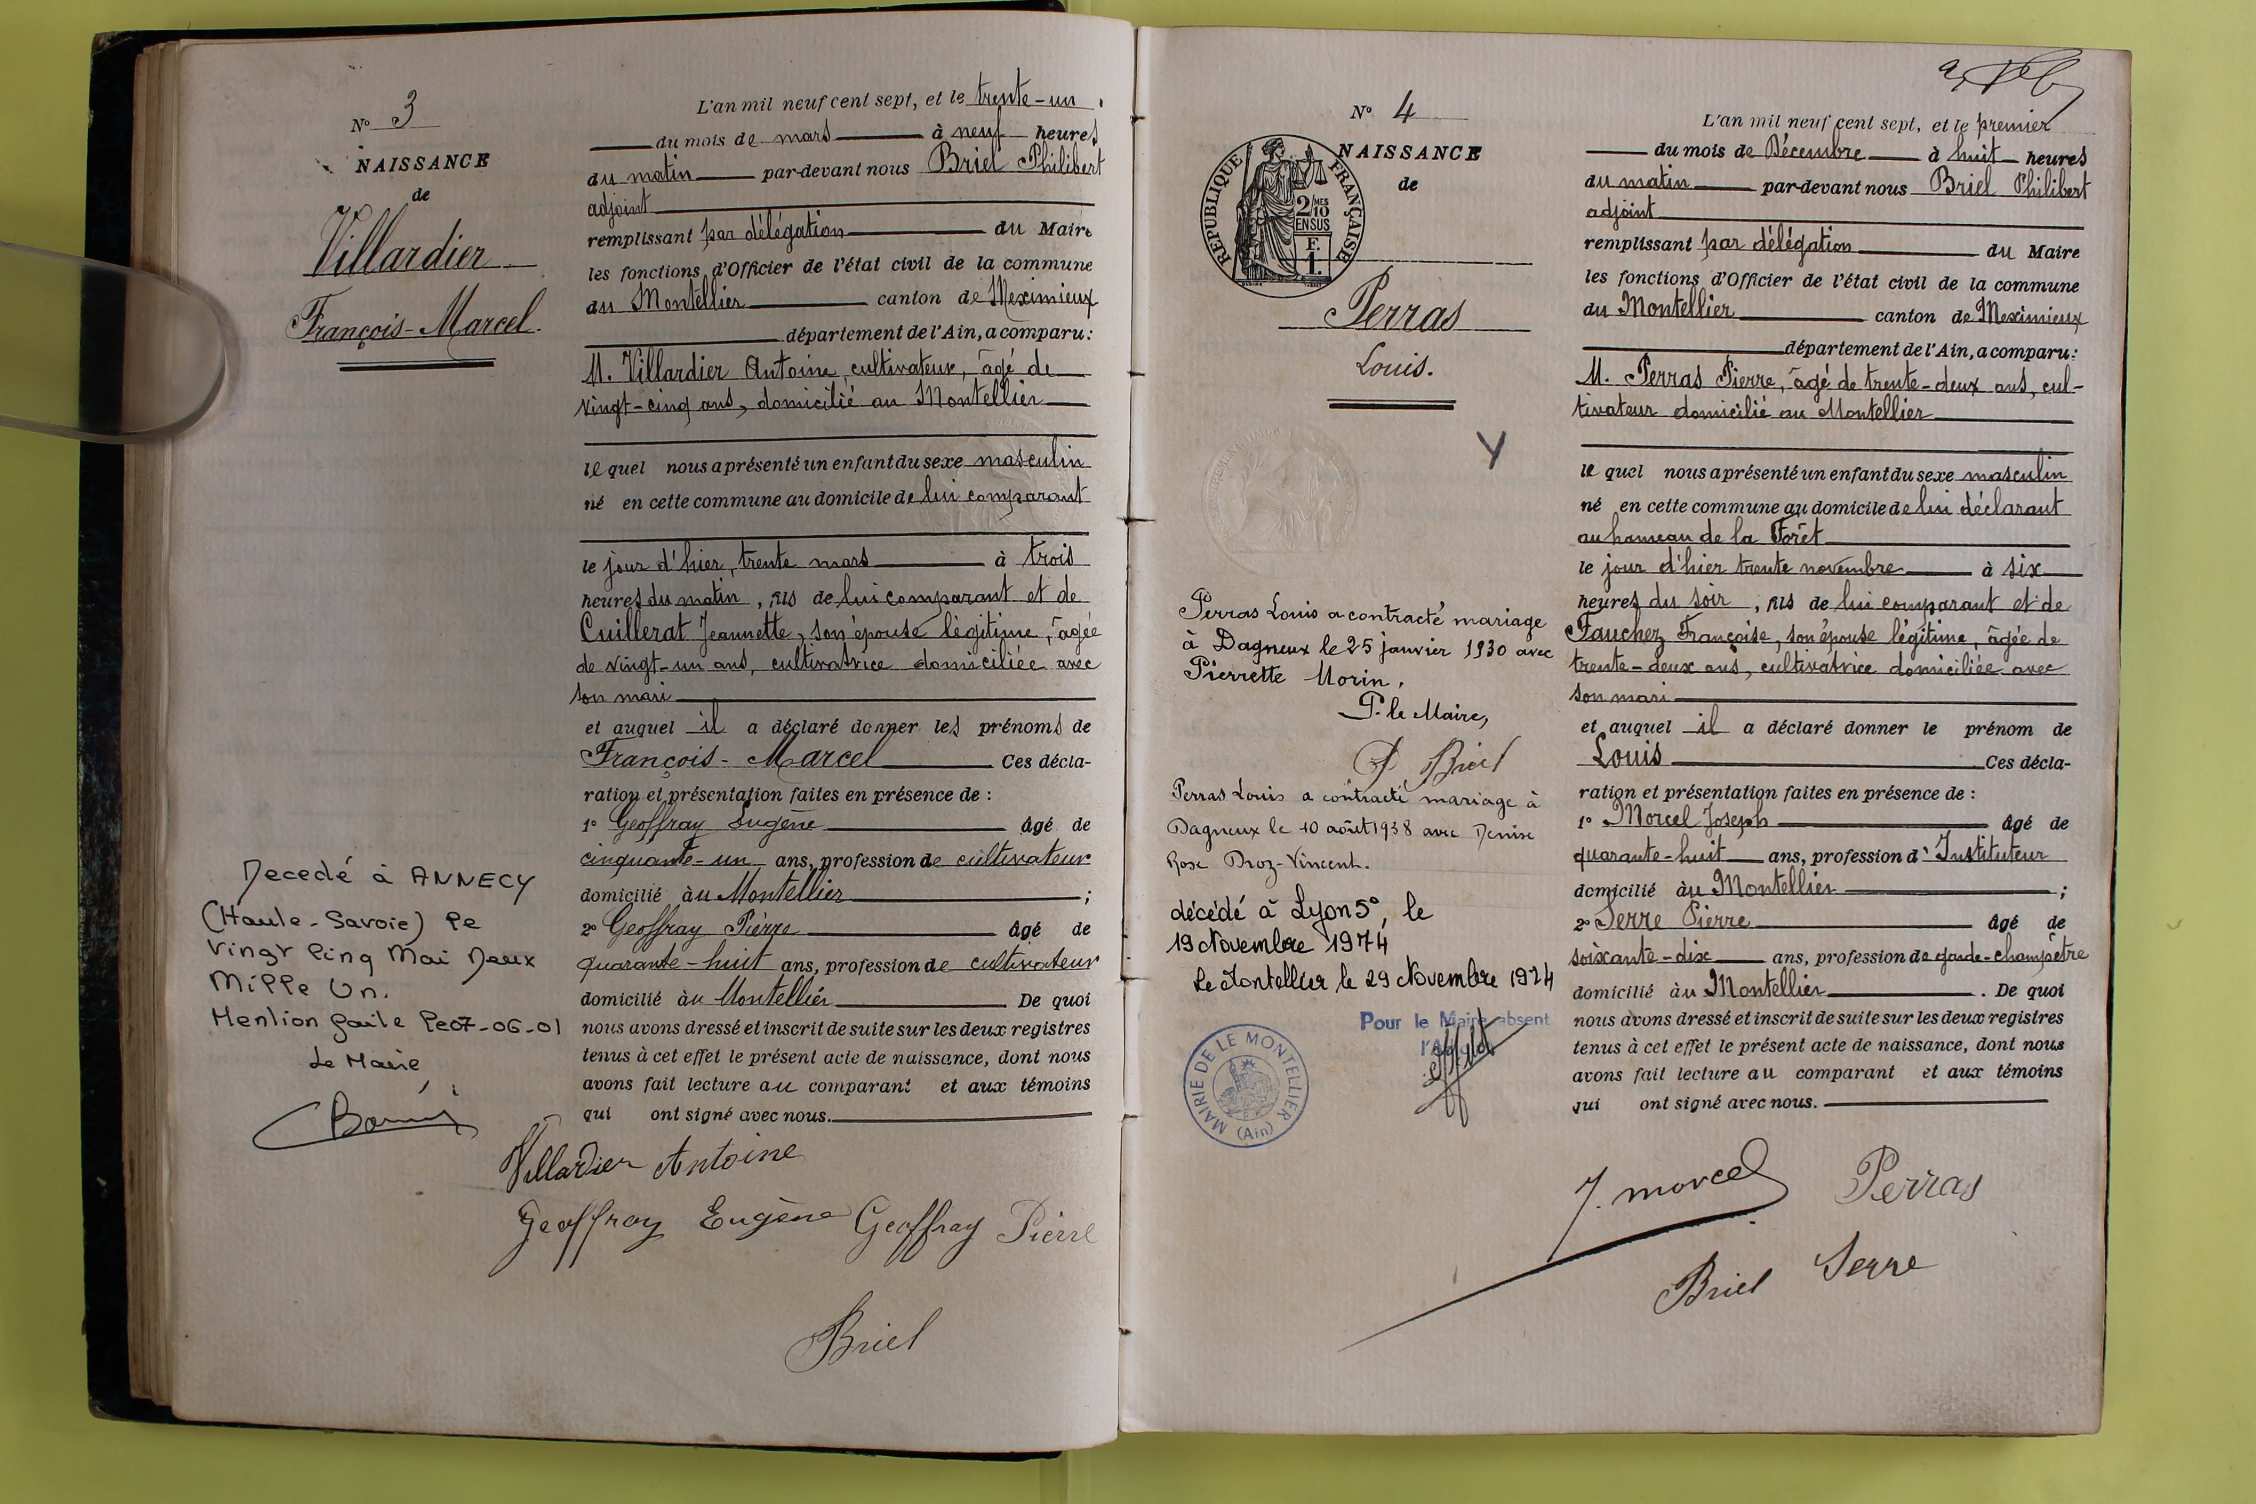 N° 3
NAISSANCE
de
Villardier
François-Marcel.
L'an mil neuf cent sept, et le trente-un
du mois de mars à neuf heures
du matin par-devant nous Briel Philibert
adjoint
remplissant par délégation du Maire
les fonctions d'Officier de l'état civil de la commune
du Montellier canton de Meximieux
département de l'Ain, a comparu:
M. Villardier Antoine, cultivateur, âgé de
vingt-cinq ans, domicilié au Montellier
lequel nous a présenté un enfant du sexe masculin
né en cette commune au domicile de lui comparant
le jour d'hier, trente mars à trois
heures du matin, fils de lui comparant et de
Cuillerat Jeannette, son épouse légitime, âgée
de vingt-un ans, cultivatrice domiciliée avec
son mari
et auquel il a déclaré donner les prénoms de
François-Marcel Ces décla-
ration et présentation faites en présence de :
1° Geoffray Eugène âgé de
cinquante-un ans, profession de cultivateur
domicilié àu Montellier ;
2° Geoffray Pierre âgé de
quarante-huit ans, profession de cultivateur
domicilié àu Montellier De quoi
nous avons dressé et inscrit de suite sur les deux registres
tenus à cet effet le présent acte de naissance, dont nous
avons fait lecture au comparant et aux témoins
qui ont signé avec nous.
Decedé à ANNECY
(Haute-Savoie) le
Vingt Cinq Mai Deux
Mille Un.
Mention faite le 07-06-01
Le Maire
Villardier Antoine
Geoffray Eugène Geoffray Pierre
Briel
N° 4
NAISSANCE
de
REPUBLIQUE FRANÇAISE
2/MES
10
EN SUS
F.
1.
Perras
Louis.
Y
Perras Louis a contracté mariage
à Dagneux le 25 janvier 1930 avec
Pierrette Morin,
P. le Maire,
P. Briel
Perras Louis a contracté mariage à
Dagneux le 10 août 1938 avec Denise
Rose Droz-Vincent.
décédé à Lyon 5°, le
19 Novembre 1974
Le Montellier le 29 Novembre 1974
Pour le Maire absent
l'Adjoint
MAIRIE DE LE MONTELLIER
(Ain)
L'an mil neuf cent sept, et le premier
du mois de Décembre à huit heures
du matin par-devant nous Briel Philibert
adjoint
remplissant par délégation du Maire
les fonctions d'Officier de l'état civil de la commune
du Montellier canton de Meximieux
département de l'Ain, a comparu:
M. Perras Pierre, âgé de trente-deux ans, cul-
tivateur domicilié au Montellier
lequel nous a présenté un enfant du sexe masculin
né en cette commune au domicile de lui déclarant
au hameau de la Forêt
le jour d'hier trente novembre à six
heures du soir, fils de lui comparant et de
Fauchez Françoise, son épouse légitime, âgée de
trente-deux ans, cultivatrice domiciliée avec
son mari
et auquel il a déclaré donner le prénom de
Louis Ces décla-
ration et présentation faites en présence de :
1° Morcel Joseph âgé de
quarante-huit ans, profession d'Instituteur
domicilié àu Montellier ;
2° Serre Pierre âgé de
soixante-dix ans, profession de garde-champêtre
domicilié àu Montellier. De quoi
nous avons dressé et inscrit de suite sur les deux registres
tenus à cet effet le présent acte de naissance, dont nous
avons fait lecture au comparant et aux témoins
qui ont signé avec nous.
J. Morcel Perras
Briel Serre